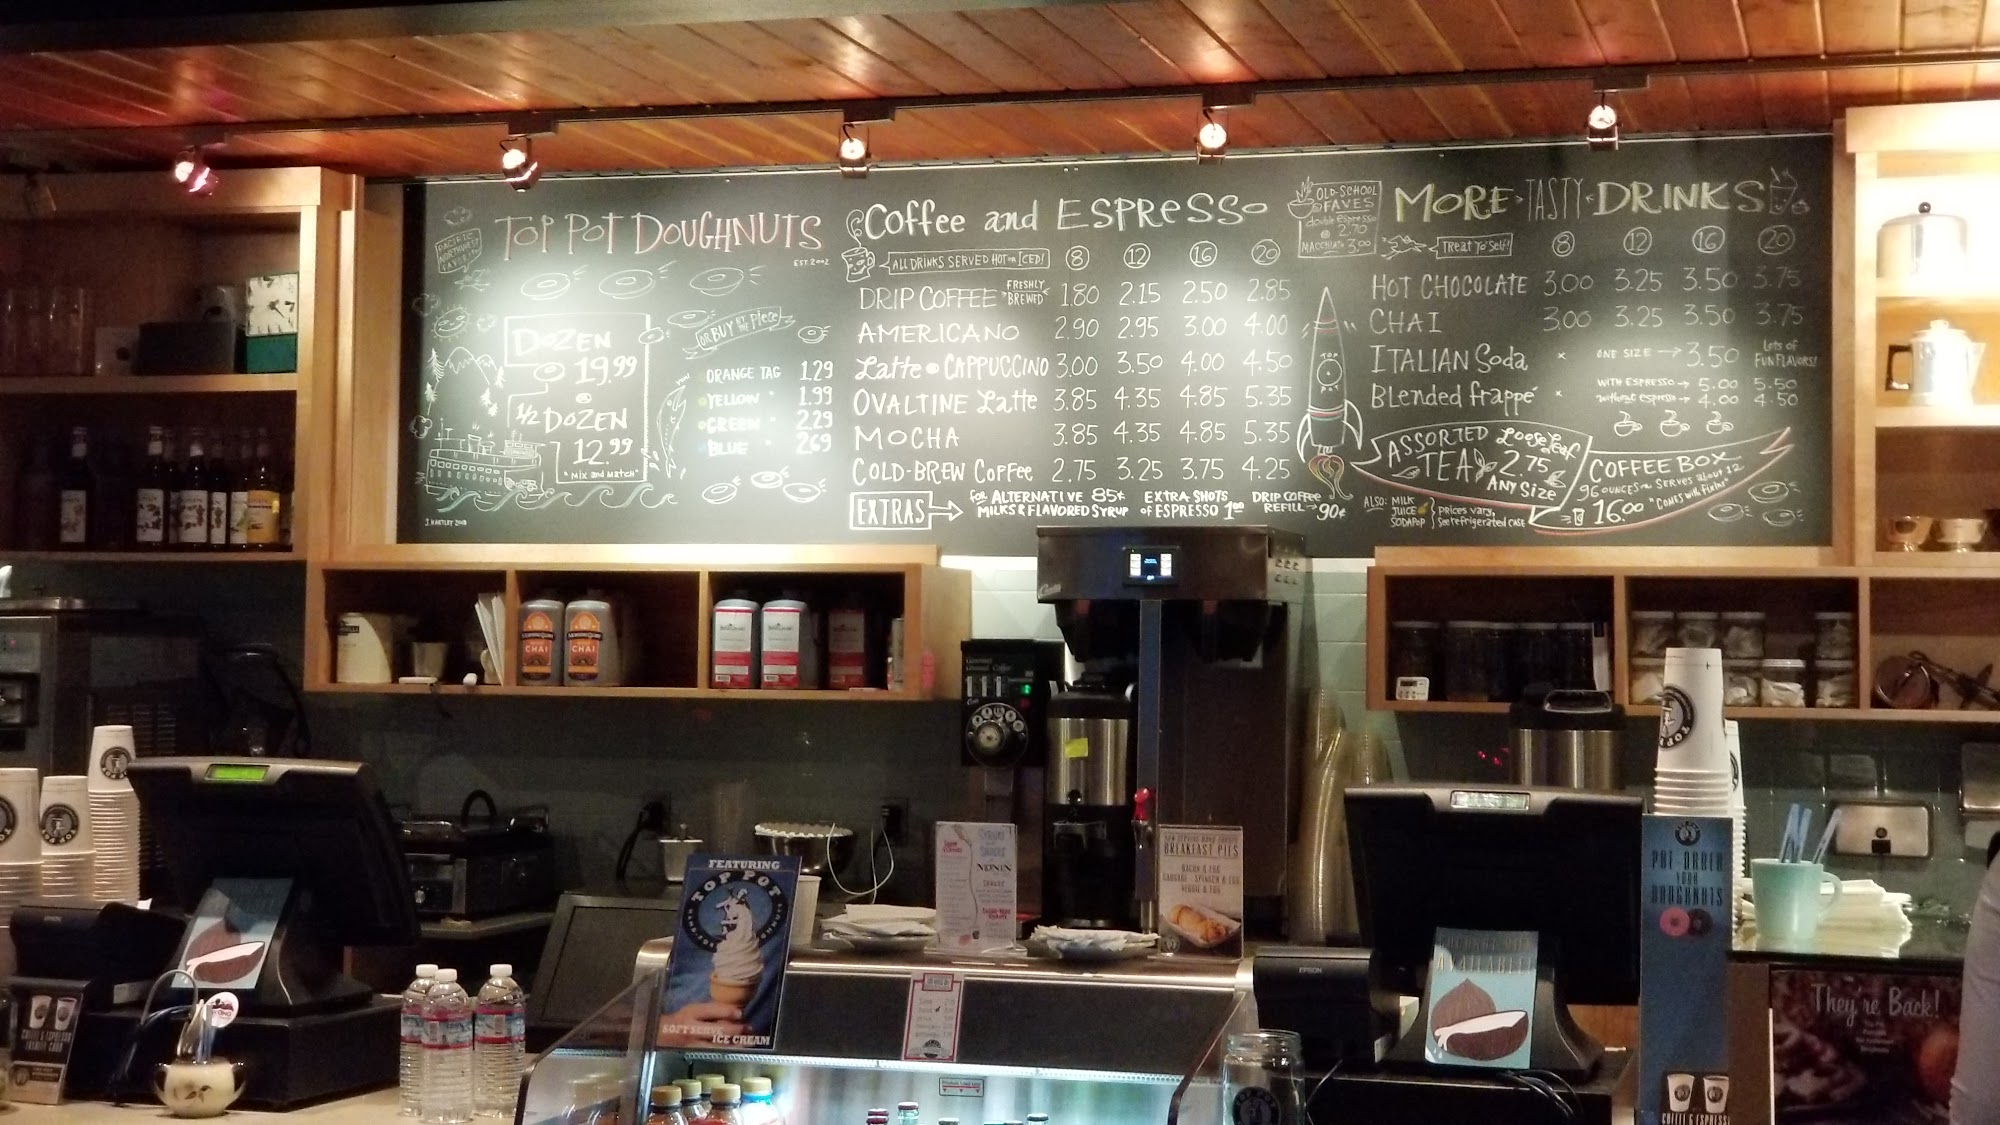 PACIFIC
NORTHWEST
FAVES!
TOP POT DOUGHNUTS
EST. 2002
DOZEN
19.99
1/2 DOZEN
12.99
"Mix and Match"
OR BUY BY THE Piece!
ORANGE TAG 1.29
YELLOW " 1.99
GREEN " 2.29
BLUE " 2.69
J. HARTLEY 2013
Coffee and ESPRESSO
ALL DRINKS SERVED HOT OR ICED!
8 12 16 20
DRIP COFFEE FRESHLY BREWED 1.80 2.15 2.50 2.85
AMERICANO 2.90 2.95 3.00 4.00
Latte CAPPUCCINO 3.00 3.50 4.00 4.50
OVALTINE Latte 3.85 4.35 4.85 5.35
MOCHA 3.85 4.35 4.85 5.35
COLD-BREW COFFEE 2.75 3.25 3.75 4.25
EXTRAS
for ALTERNATIVE 85¢
MILKS & FLAVORED SYRUP
EXTRA SHOTS
OF ESPRESSO 1.00
DRIP COFFEE
REFILL 90¢
OLD-SCHOOL
FAVES
double espresso
@ 2.70
MACCHIATO 3.00
MORE TASTY DRINKS
TREAT Yo' Self!
8 12 16 20
HOT CHOCOLATE 3.00 3.25 3.50 3.75
CHAI 3.00 3.25 3.50 3.75
ITALIAN Soda × ONE SIZE 3.50 Lots of FUN FLAVORS!
Blended frappé × WITH ESPRESSO 5.00 5.50
without espresso 4.00 4.50
TOP
POT
ASSORTED Loose Leaf
TEA 2.75
ANY Size
COFFEE BOX
96 OUNCES SERVES about 12
16.00 "COMES with Fixins"
ALSO: MILK
JUICE
SODA POP
prices vary,
see refrigerated case
CHAI
CHAI
EPSON
FEATURING
TOP POT
HAND-FORGED DOUGHNUTS
SOFT SERVE
ICE CREAM
BREAKFAST PIES
BACON & EGG
SAUSAGE, SPINACH & EGG
VEGGIE & EGG
EPSON
AVAILABLE
PRE-ORDER
YOUR
DOUGHNUTS
COFFEE & ESPRESSO
They're Back!
COFFEE & ESPRESSO